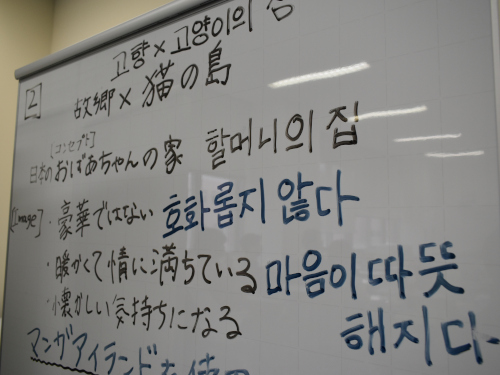 고향 × 고양이의
[2] 故郷 × 猫の島
[コンセプト]
日本のおばあちゃんの家 할머니의 집
[Image] ・豪華ではない 호화롭지 않다
・暖かくて情に満ちている 마음이 따뜻
・懐かしい気持ちになる 해지다.
マンガアイランドを使